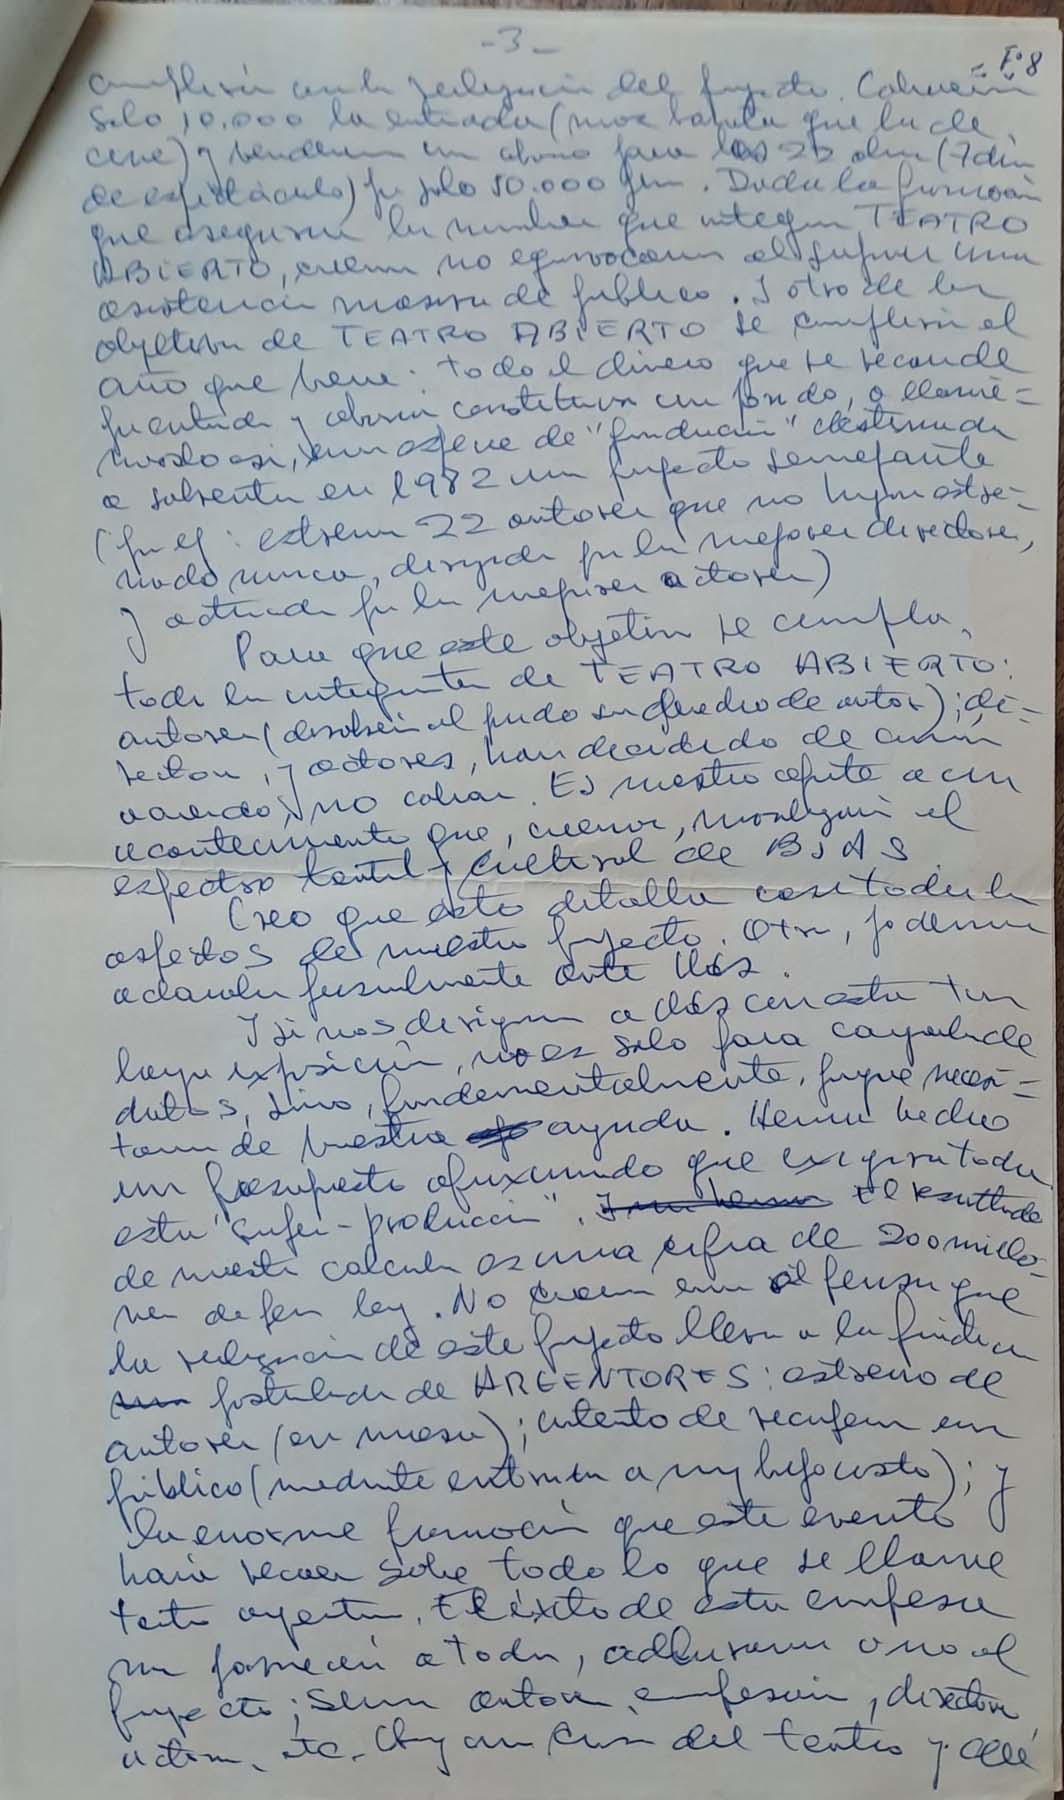 - 3 -
Fº 8
cumplirá con la realización del proyecto. Cobraremos
solo 10.000 la entrada (más barata que la de
cine) y venderemos un abono para los 22 obras (7 días
de espectáculo) por solo 50.000 pesos. Dada la promoción
que aseguran los nombres que integran TEATRO
ABIERTO, creemos no equivocarnos al suponer una
asistencia masiva de público. Y otro de los
objetivos de TEATRO ABIERTO se cumplirá el
año que viene: todo el dinero que se recaude
por entradas y abonos constituirá un fondo, o llamé=
moslo así, una especie de "fundación" destinada
a solventar en 1982 un proyecto semejante
(por ej: estrenar 22 autores que no hayan estre=
nado nunca, dirigidos por los mejores directores,
y actuados por los mejores actores)
Para que este objetivo se cumpla,
todos los integrantes de TEATRO ABIERTO:
autores (devolverán al fondo su derecho de autor); di=
rectores, y actores, han decidido de común
acuerdo, no cobrar. Es nuestro aporte a un
acontecimiento que, creemos, movilizará el
espectro teatral y cultural de BS AS.
Creo que esto detalla casi todos los
aspectos de nuestro proyecto. Otros, podemos
aclararlos personalmente ante Uds.
Y si nos dirigimos a Uds con esta tan
larga exposición, no es solo para
datos, sino, fundamentalmente, porque necesi=
tamos de vuestra ayuda. Hemos hecho
un presupuesto aproximado que exigiría toda
esta "super-producción". El resultado
de nuestros cálculos es una cifra de 200 millo=
nes de pesos ley. No creemos errar al pensar que
la realización de este proyecto lleva a la práctica
postulados de ARGENTORES: estreno de
autores (en masa); intento de recuperar un
público (mediante entradas a muy bajo costo); y
la enorme promoción que este evento
hará recaer sobre todo lo que se llame
teatro argentino. El éxito de esta empresa
nos a todos, adhiramos o no al
proyecto; seamos autores, empresarios, directores
actores, etc. Hay una crisis del teatro y allí